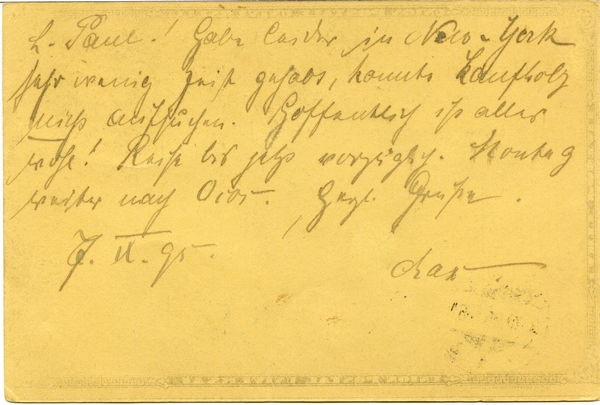 L. Paul! Habe leider in New-York
sehr wenig Zeit gehabt, konnte Kaufholz
nicht aufsuchen. Hoffentlich ist alles
wohl! Reise bis jetzt vorzüglich. Montag
weiter nach Ocos. Herzl. Grüße.
7. IX. 95.